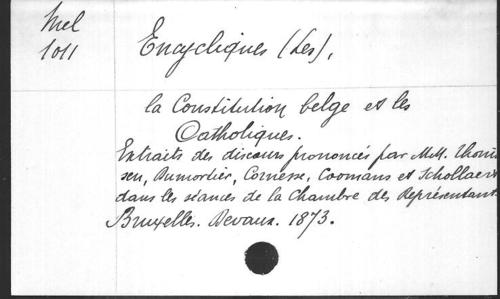 Mel
1011
Encycliques (Les),
la Constitution belge et les
Catholiques.
Extraits des discours prononcés par M.M. Thonis
sen, Dumortier, Cornesse, Coomans et Schollaert
dans les séances de la Chambre des Représentants
Bruxelles. Devaux. 1873.